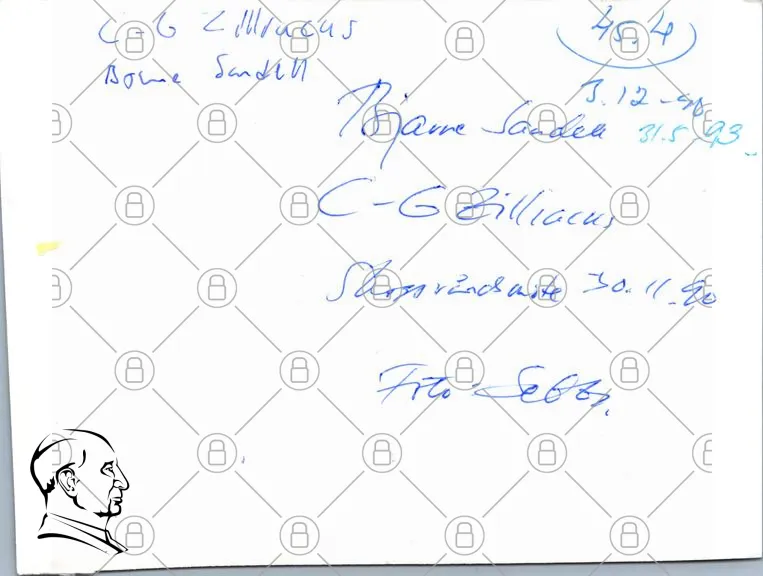 C-G Zilliacus
45.4
Bjarne Sandell
3.12-90
Bjarne Sandell 31.5-93
C-G Zilliacus
30.11.90
Foto: